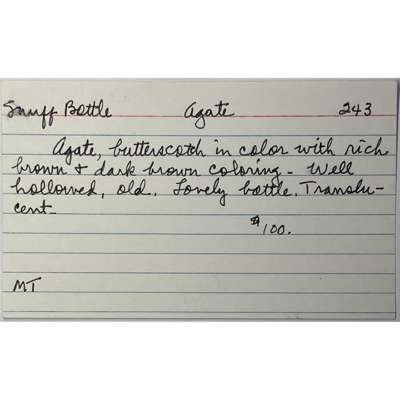 Snuff Bottle Agate 243
Agate, butterscotch in color with rich
brown + dark brown coloring - Well
hollowed, old. Lovely bottle. Translu-
cent-
$100.
MT